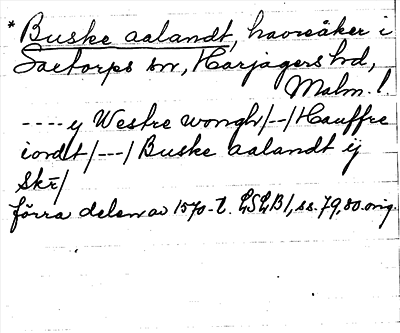 * Buske aalandt, havreåker i
Saxtorps sn, Harjagers hd,
Malm. l.
---- y Westre wongh/--/Hauffre
iordt/---/Buske aalandt ij
Skr/
förra delen av 1570-t. LSLB1, ss. 79, 80 orig.